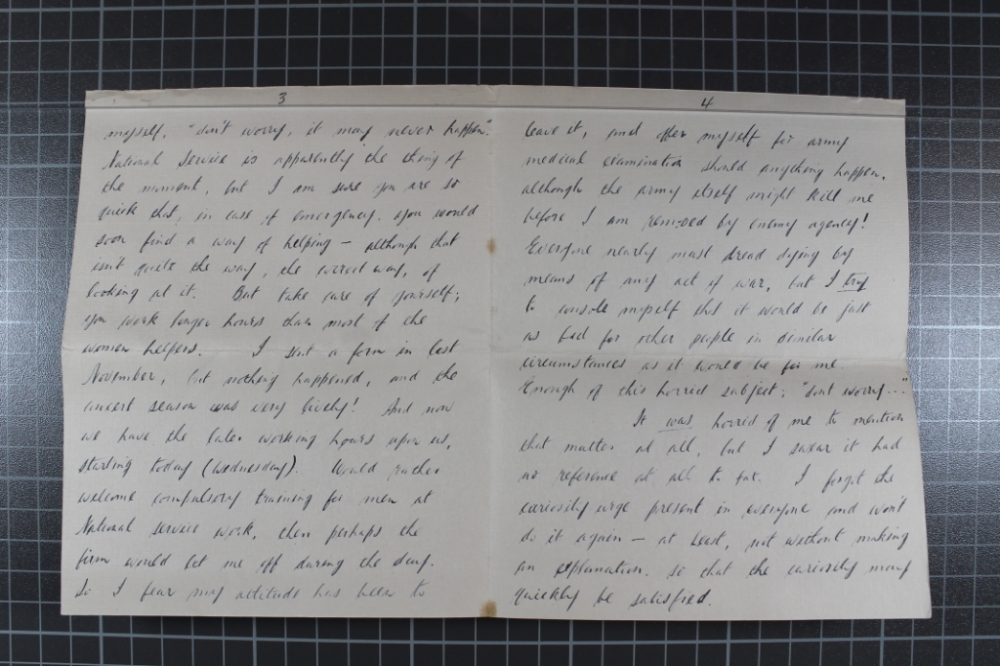 3
myself, "don't worry, it may never happen".
National Service is apparently the thing of
the moment, but I am sure you are so
quick that, in case of emergency, you would
soon find a way of helping - although that
isn't quite the way, the correct way, of
looking at it. But take care of yourself;
you work longer hours than most of the
women helpers. I sent a form in last
November, but nothing happened, and the
concert season was very lively! And now
we have the later working hours upon us,
starting today (Wednesday). Would rather
welcome compulsory training for men at
National Service work, then perhaps the
firm would let me off during the day.
So I fear my attitude has been to
4
leave it, and offer myself for army
medical examination should anything happen,
although the army itself might kill me
before I am removed by enemy agency!
Everyone nearly must dread dying by
means of any act of war, but I try
to console myself that it would be just
as bad for other people in similar
circumstances as it would be for me.
Enough of this horrid subject; "don't worry..."
It was horrid of me to mention
that matter at all, but I swear it had
no reference at all to
I forgot the
curiosity urge present in everyone and won't
do it again - at least, not without making
an explanation, so that the curiosity may
quickly be satisfied.